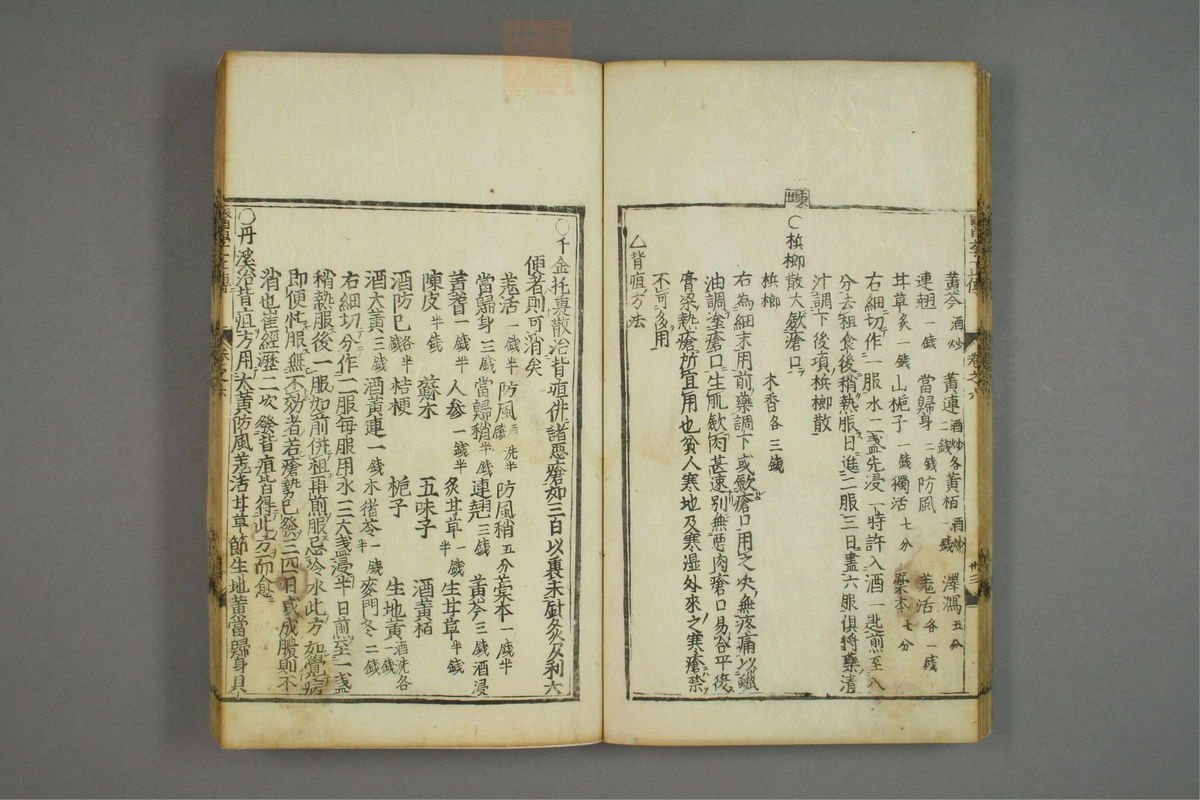 黄芩酒炒 黄連酒炒各二錢 黄栢酒炒一錢 澤瀉五分
連翹一錢 當歸身二錢 防風 羗活各一錢
甘草炙一錢 山梔子一錢 獨活七分 藁本七分
右細切作一服水二盞先浸一時許入酒一匙煎至八
分去粗食後稍熱服日進二服三日盡六服俱將藥清
汁調下後項檳榔散
○檳榔散大歛瘡口
檳榔 木香各三錢
右為細末用前藥調下或歛瘡口用之决無疼痛以蠟
油調塗瘡口生肌歛肉甚速別無悪肉瘡口易合平復
膏粱熱瘡所宜用也貧人寒地及寒湿外來之寒瘡禁
不可多用
△背疽方法
○千金托裏散治背疽併諸悪瘡如三日以裏未針灸及利六
便者則可消矣
羗活一錢半 防風酒洗半錢 防風稍五分 藁本一錢半
當歸身三錢 當歸稍半錢 連翹三錢 黄芩三錢酒浸
黄耆一錢半 人参一錢半 炙甘草一錢半 生甘草半錢
陳皮半錢 蘇木 五味子 酒黄栢
酒防已各半錢 桔梗 梔子 生地黄酒洗各一錢
酒大黄三錢 酒黄連一錢 木猪苓一錢 麥門冬二錢
右細切分作二服每服用水三大盞浸半日煎至一盞
稍熱服後一服如前併粗再煎服忌冷水此方如覺病
即便忙服無不効者若瘡勢已發三四日或成膿則不
消也雀經歷二次發背疽皆得此方而愈
○丹溪治背疽方用大黄防風羗活甘草節生地黄當歸身貝